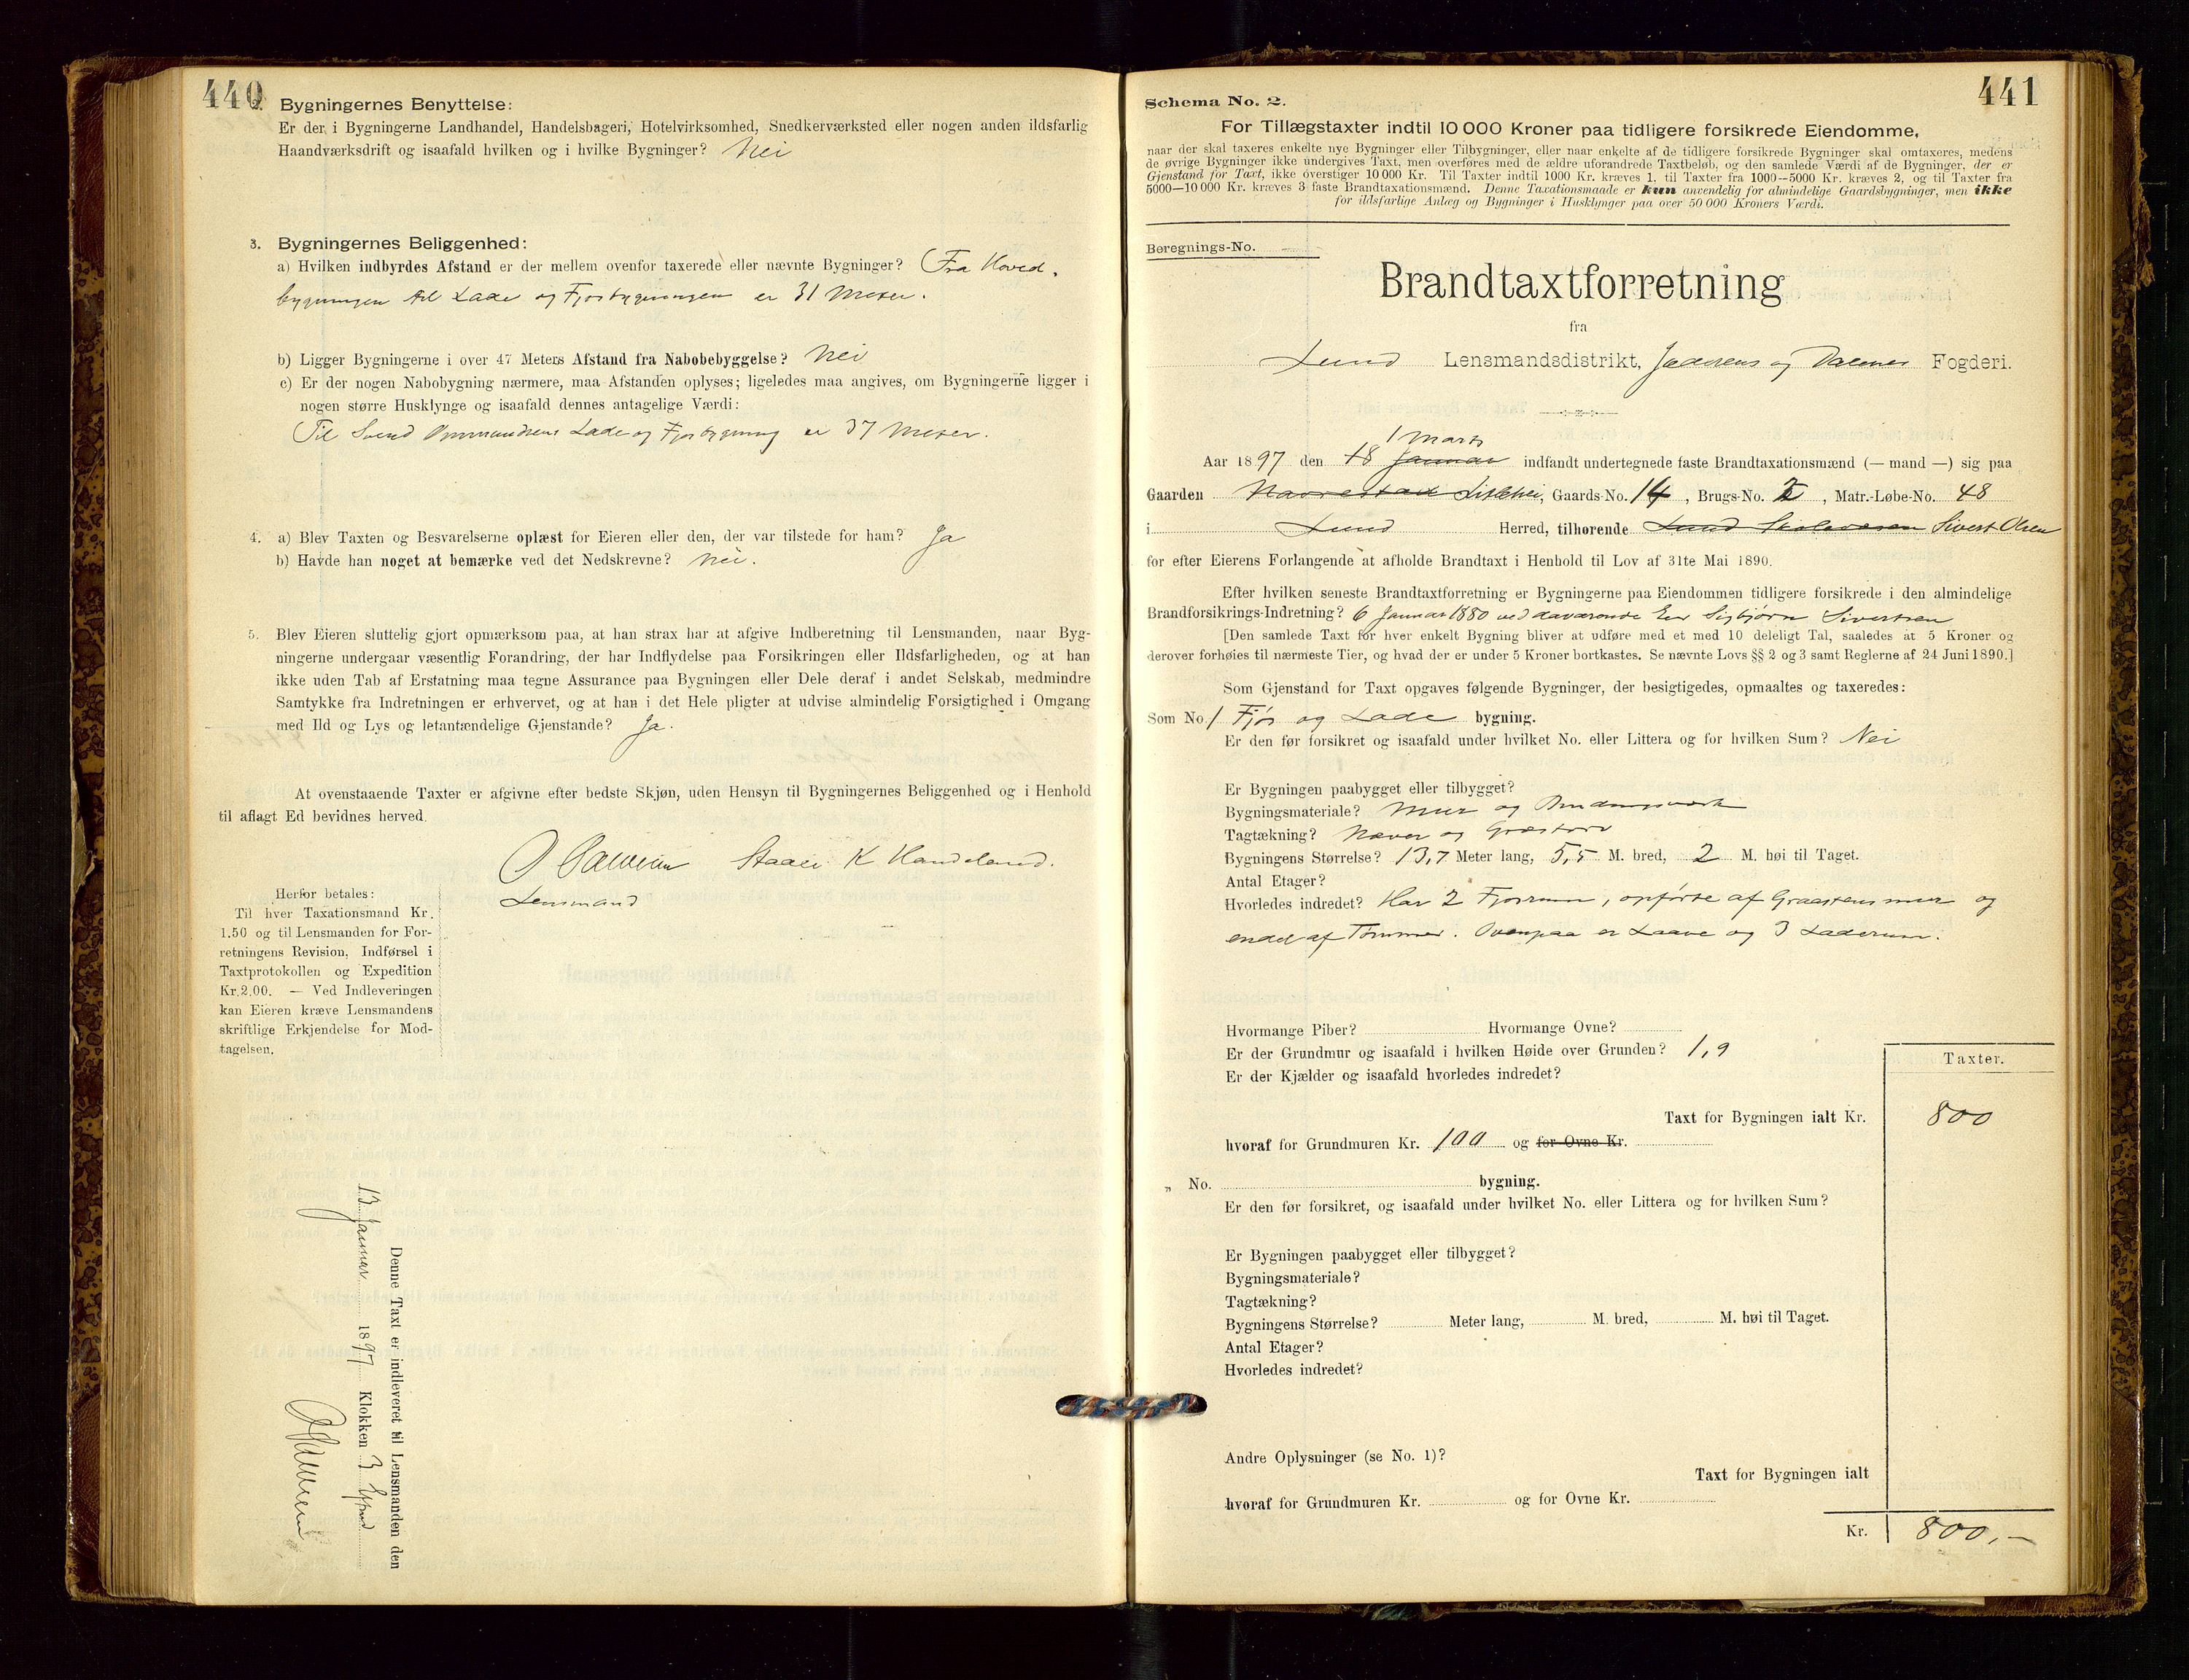 440
2. Bygningernes Benyttelse:
Er der i Bygningerne Landhandel, Handelsbageri, Hotelvirksomhed, Snedkerværksted eller nogen anden ildsfarlig
Haandværksdrift og isaafald hvilken og i hvilke Bygninger? Nei
3. Bygningernes Beliggenhed:
a) Hvilken indbyrdes Afstand er der mellem ovenfor taxerede eller nævnte Bygninger? Fra Hoved.
bygningen til Lade og Fjøsbygningen er 31 Meter.
b) Ligger Bygningerne i over 47 Meters Afstand fra Nabobebyggelse? Nei
c) Er der nogen Nabobygning nærmere, maa Afstanden oplyses; ligeledes maa angives, om Bygningerne ligger i
nogen større Husklynge og isaafald dennes antagelige Værdi:
Til Svend Ommundsens Lade og Fjøsbygning er 37 Meter.
4. a) Blev Taxten og Besvarelserne oplæst for Eieren eller den, der var tilstede for ham? Ja
b) Havde han noget at bemærke ved det Nedskrevne? Nei.
5. Blev Eieren sluttelig gjort opmærksom paa, at han strax har at afgive Indberetning til Lensmanden, naar Byg-
ningerne undergaar væsentlig Forandring, der har Indflydelse paa Forsikringen eller Ildsfarligheden, og at han
ikke uden Tab af Erstatning maa tegne Assurance paa Bygningen eller Dele deraf i andet Selskab, medmindre
Samtykke fra Indretningen er erhvervet, og at han i det Hele pligter at udvise almindelig Forsigtighed i Omgang
med Ild og Lys og letantændelige Gjenstande? Ja.
At ovenstaaende Taxter er afgivne efter bedste Skjøn, uden Hensyn til Bygningernes Beliggenhed og i Henhold
til aflagt Ed bevidnes herved.
Staale K Handeland.
Lensmand
Herfor betales:
Til hver Taxationsmand Kr.
1.50 og til Lensmanden for For-
retningens Revision, Indførsel i
Taxtprotokollen og Expedition
Kr. 2.00. — Ved Indleveringen
kan Eieren kræve Lensmandens
skriftlige Erkjendelse for Mod-
tagelsen.
Denne Taxt er indleveret til Lensmanden den
13 Januar 1897 Klokken 3
441
Schema No. 2.
For Tillægstaxter indtil 10 000 Kroner paa tidligere forsikrede Eiendomme,
naar der skal taxeres enkelte nye Bygninger eller Tilbygninger, eller naar enkelte af de tidligere forsikrede Bygninger skal omtaxeres, medens
de øvrige Bygninger ikke undergives Taxt, men overføres med de ældre uforandrede Taxtbeløb, og den samlede Værdi af de Bygninger, der er
Gjenstand for Taxt, ikke overstiger 10 000 Kr. Til Taxter indtil 1000 Kr. kræves 1, til Taxter fra 1000—5000 Kr. kræves 2, og til Taxter fra
5000—10 000 Kr. kræves 3 faste Brandtaxationsmænd. Denne Taxationsmaade er kun anvendelig for almindelige Gaardsbygninger, men ikke
for ildsfarlige Anlæg og Bygninger i Husklynger paa over 50 000 Kroners Værdi.
Beregnings-No.
Brandtaxtforretning
fra
Lund Lensmandsdistrikt, Jæderens og Dalenes Fogderi.
1 Marts
Aar 1897 den 18 Januar indfandt undertegnede faste Brandtaxationsmænd (— mand —) sig paa
Gaarden Navrestad Lislehei, Gaards-No. 14, Brugs-No. 2, Matr.-Løbe-No. 48
i Lund Herred, tilhørende Lund Skolevæsen Sivert Olsen
for efter Eierens Forlangende at afholde Brandtaxt i Henhold til Lov af 31te Mai 1890.
Efter hvilken seneste Brandtaxtforretning er Bygningerne paa Eiendommen tidligere forsikrede i den almindelige
Brandforsikrings-Indretning? 6 Januar 1880 ved daværende Eier Sigbjørn Sivertsen
[Den samlede Taxt for hver enkelt Bygning bliver at udføre med et med 10 deleligt Tal, saaledes at 5 Kroner og
derover forhøies til nærmeste Tier, og hvad der er under 5 Kroner bortkastes. Se nævnte Lovs §§ 2 og 3 samt Reglerne af 24 Juni 1890.]
Som Gjenstand for Taxt opgaves følgende Bygninger, der besigtigedes, opmaaltes og taxeredes:
Som No. 1 Fjøs og Lade bygning.
Er den før forsikret og isaafald under hvilket No. eller Littera og for hvilken Sum? Nei
Er Bygningen paabygget eller tilbygget?
Bygningsmateriale? Mur og Bindingsværk
Tagtækning? Næver og Græstorv
Bygningens Størrelse? 13,7 Meter lang, 5,5 M. bred, 2 M. høi til Taget.
Antal Etager?
Hvorledes indredet? Har 2 Fjøsrum, opførte af Graastensmur og
endel af Tømmer. Ovenpaa er Laave og 3 Laderum.
Hvormange Piber? Hvormange Ovne?
Er der Grundmur og isaafald i hvilken Høide over Grunden? 1,9
Er der Kjælder og isaafald hvorledes indredet?
Taxter.
Taxt for Bygningen ialt Kr. 800
hvoraf for Grundmuren Kr. 100 og for Ovne Kr.
„ No. bygning.
Er den før forsikret, og isaafald under hvilket No. eller Littera og for hvilken Sum?
Er Bygningen paabygget eller tilbygget?
Bygningsmateriale?
Tagtækning?
Bygningens Størrelse? Meter lang, M. bred, M. høi til Taget.
Antal Etager?
Hvorledes indredet?
Andre Oplysninger (se No. 1)?
Taxt for Bygningen ialt
hvoraf for Grundmuren Kr. og for Ovne Kr.
Kr. 800,-